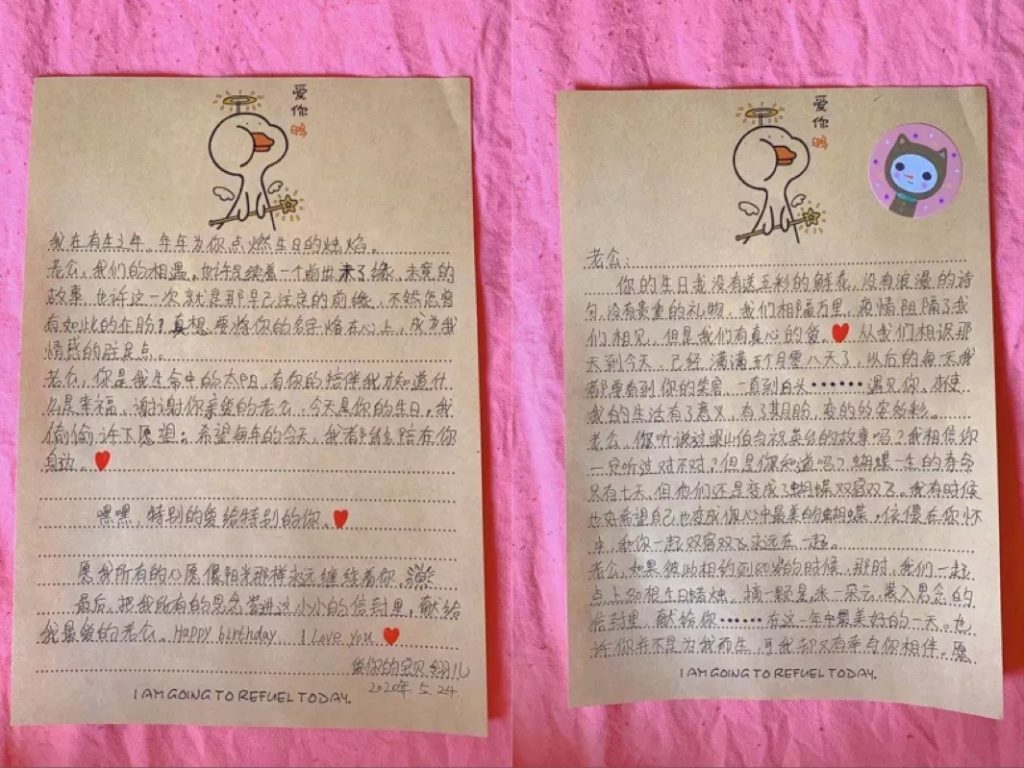 爱
你
鸭
我在有生之年，年年为你点燃生日的烛焰。
老公，我们的相遇，也许是续着一个前世未了缘，未竟的
故事，也许这一次就是那早已注定的前缘，不然怎会
有如此的在盼？真想要将你的名字烙在心上，成为我
情感的驻足点。
老公，你是我生命中的太阳，有你的陪伴我才知道什
么是幸福，谢谢你亲爱的老公，今天是你的生日，我
偷偷许下愿望：希望每年的今天，我都能陪在你
身边。
嘿嘿，特别的爱给特别的你。
愿我所有的心愿像阳光那样永远缠绕着你。
最后，把我所有的思念装进这小小的信封里，献给
我最爱的老公。Happy birthday I Love you
爱你的宝贝翎儿
2020年 5.24
I AM GOING TO REFUEL TODAY.
爱
你
鸭
老公：
你的生日我没有送五彩的鲜花，没有浪漫的诗
句，没有贵重的礼物，我们相隔万里，疫情阻隔了我
们相见，但是我们有真心的爱。从我们相识那
天到今天，已经满满五个月零八天了，以后的每一天我
都要看到你的笑容，一直到白头……遇见你，才使
我的生活有了意义，有了期盼，变的多姿多彩。
老公，你听说过梁山伯与祝英台的故事吗？我相信你
一定听过对不对？但是你知道吗？蝴蝶一生的寿命
只有七天，但他们还是变成了蝴蝶双宿双飞。我有时候
也好希望自己也变成你心中最美的蝴蝶，依偎在你怀
中，和你一起双宿双飞永远在一起。
老公，如果彼此相约到80岁的时候，那时，我们一起
点上80根生日蜡烛，摘一颗星，采一朵云，装入思念的
信封里，献给你……在这一年中最美好的一天。也
许你并不是为我而生，可我却又有幸与你相伴。愿
I AM GOING TO REFUEL TODAY.